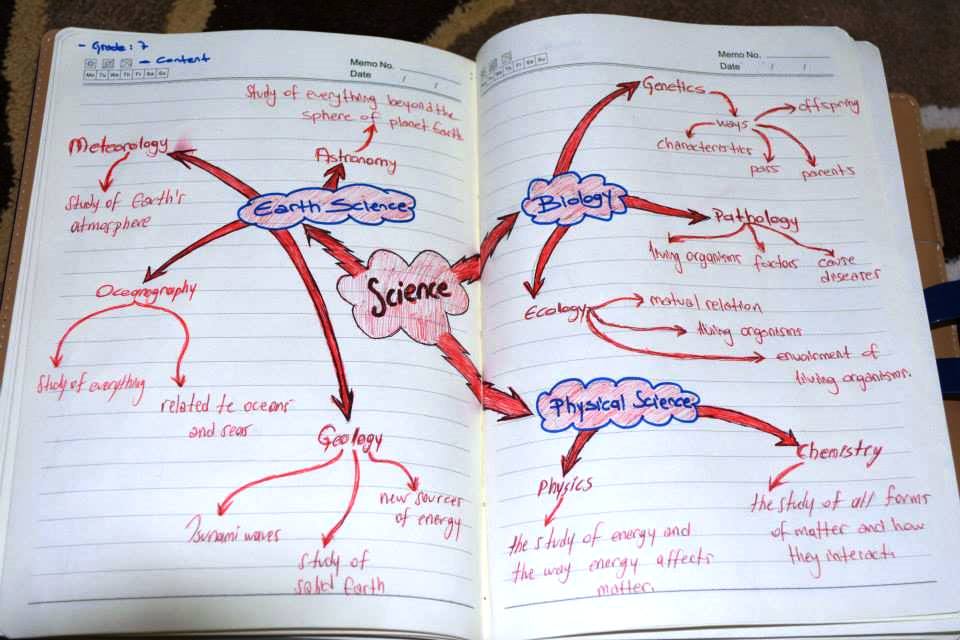 - Grade: 7
- Content
Mo Tu We Th Fr Sa Su
Memo No.
Date / /
Study of everything beyond the
sphere of planet Earth
Astronomy
Meteorology
Study of Earth's
atmosphere
Earth Science
Oceanography
Study of everything
related to oceans
and seas
Geology
Tsunami waves
Study of
solid Earth
new sources
of energy
Science
Mo Tu We Th Fr Sa Su
Memo No.
Date / /
Genetics
ways
offspring
characteristics
pass
parents
Biology
Pathology
living organisms
factors
cause
diseases
Ecology
mutual relation
living organisms
enviroment of
living organisms.
Physical Science
Physics
the study of energy and
the way energy affects
matter.
Chemistry
the study of all forms
of matter and how
they interact.